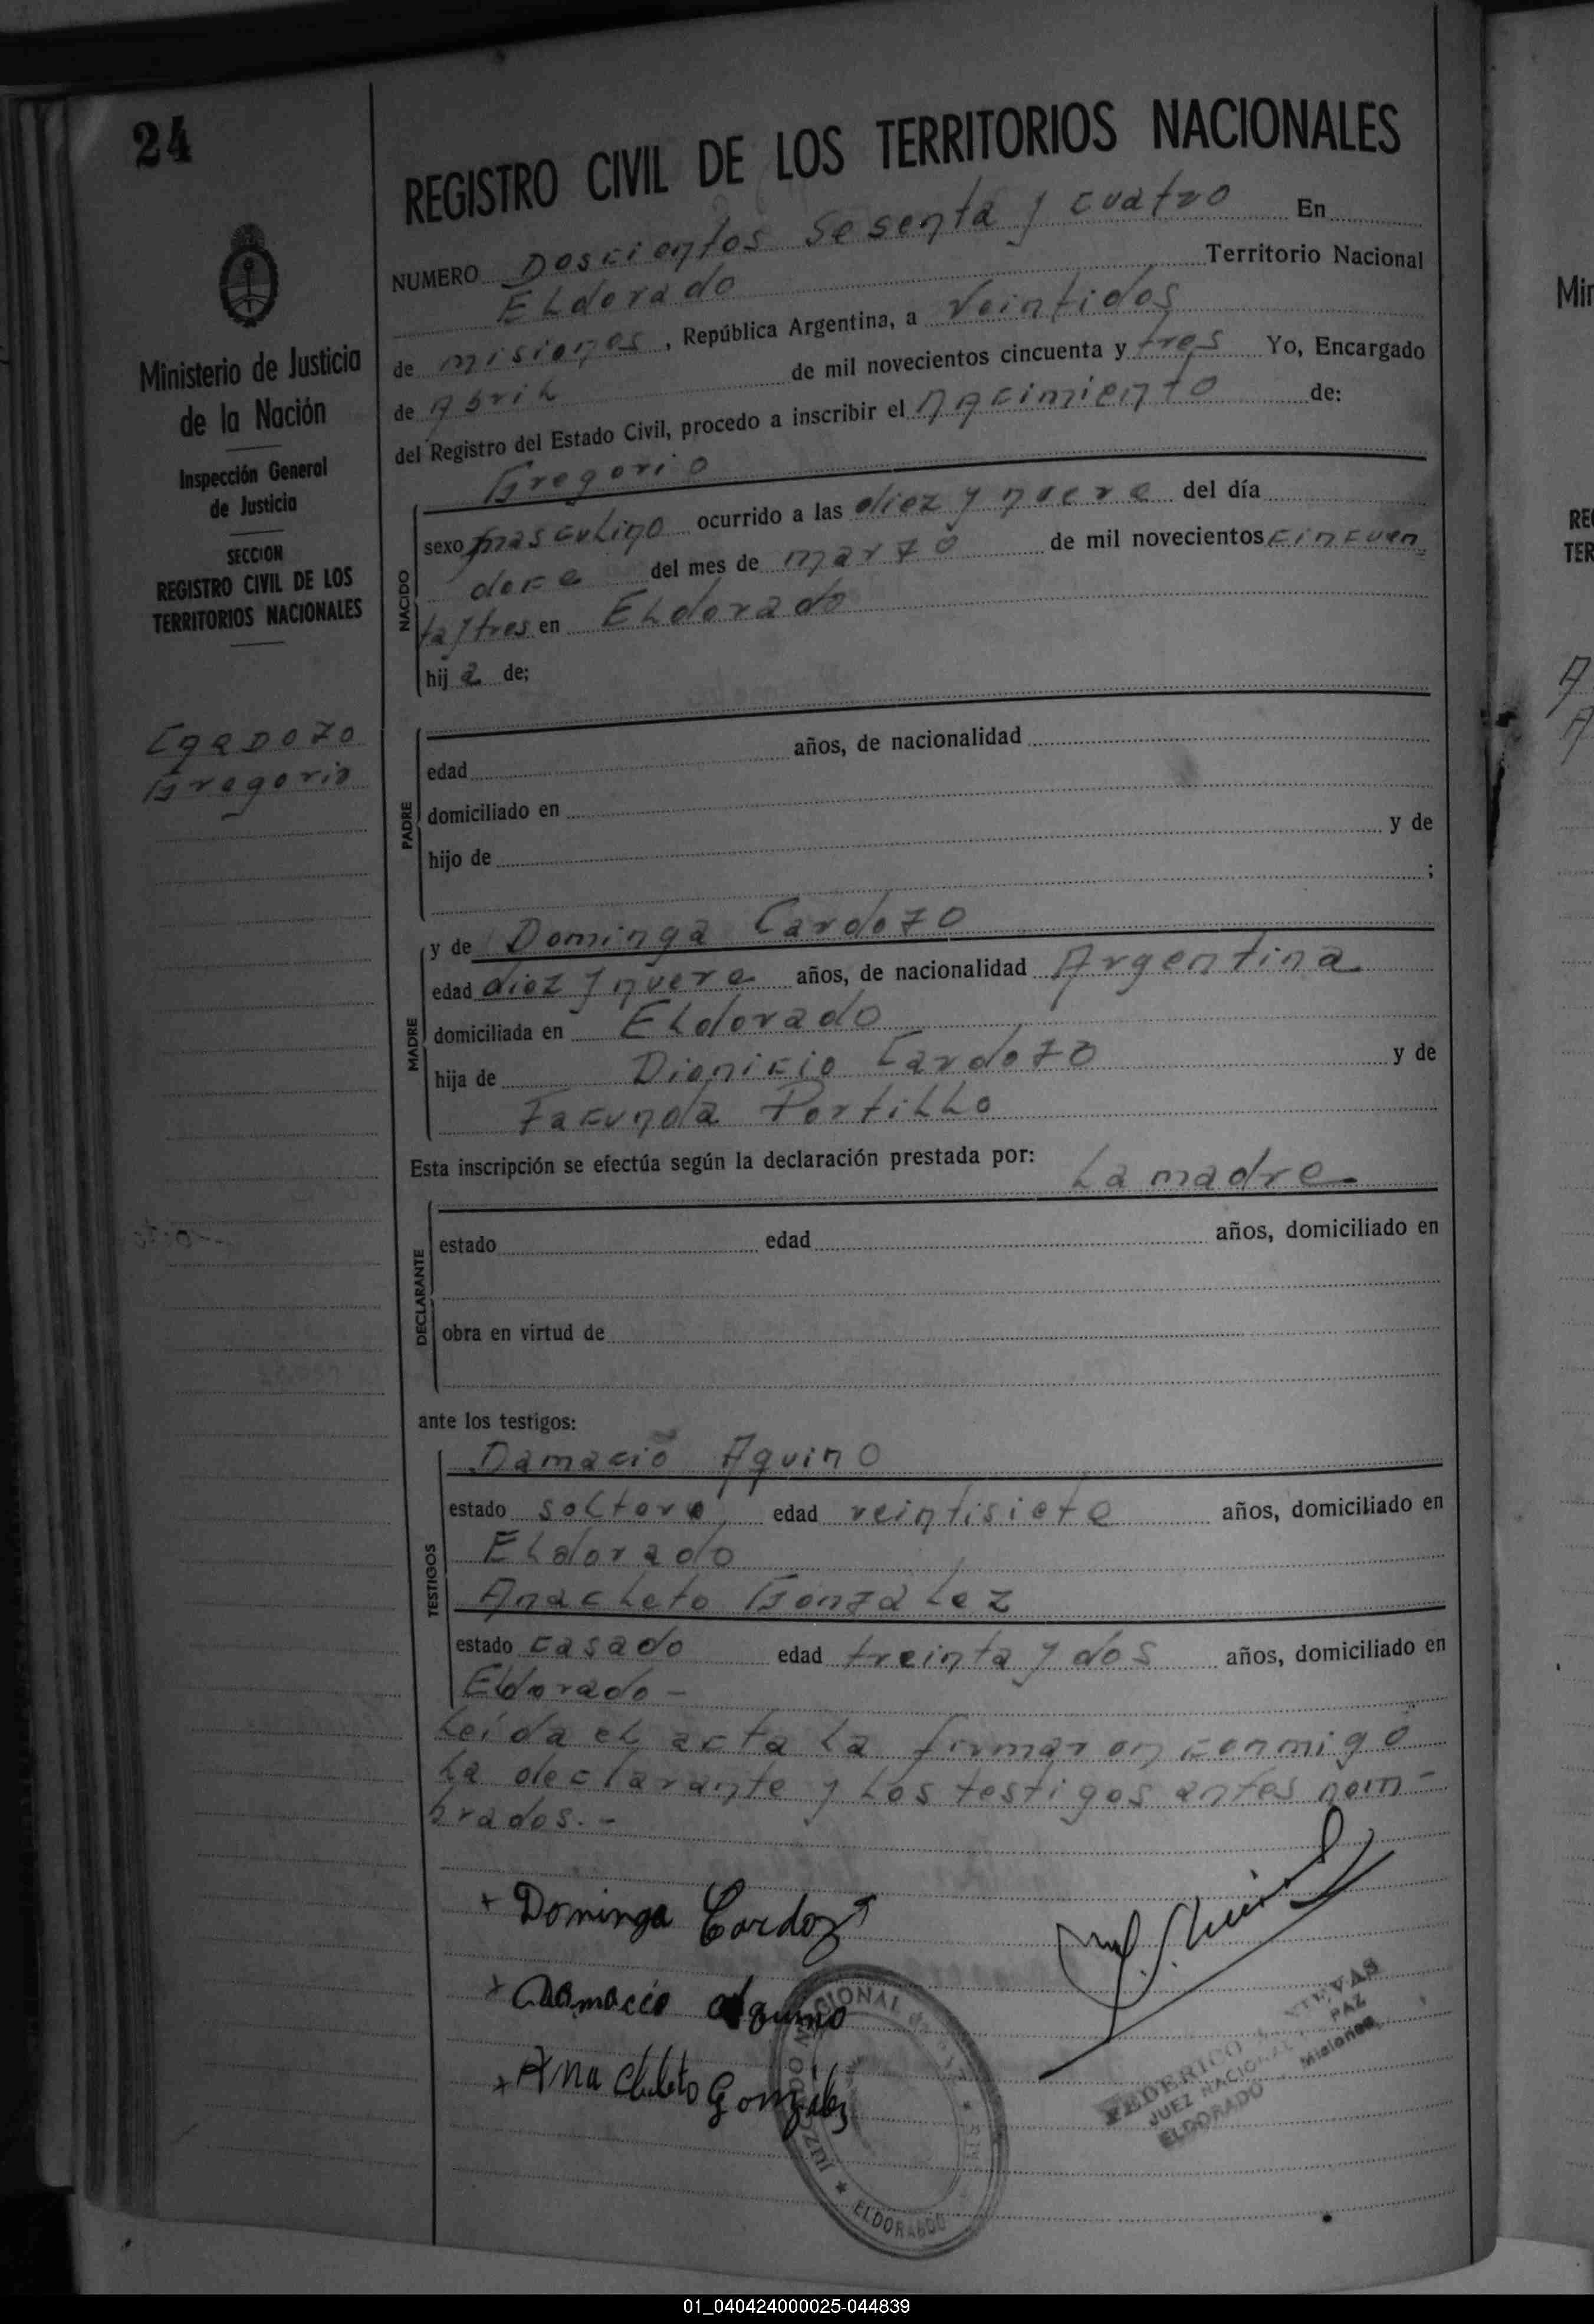 24
REGISTRO CIVIL DE LOS TERRITORIOS NACIONALES
NUMERO Doscientos Sesenta y cuatro En
ELdorado Territorio Nacional
de misiones, República Argentina, a Veintidos
de Abril de mil novecientos cincuenta y tres Yo, Encargado
del Registro del Estado Civil, procedo a inscribir el nacimiento de:
Ministerio de Justicia
de la Nación
Inspección General
de Justicia
SECCION
REGISTRO CIVIL DE LOS
TERRITORIOS NACIONALES
Gregorio
Gregorio
NACIDO
sexo masculino ocurrido a las diez y nueve del día
doce del mes de marzo de mil novecientos cincuen
ta y tres en ELdorado
hij a de;
PADRE
edad años, de nacionalidad
domiciliado en
hijo de y de
;
MADRE
y de Dominga Cardozo
edad diez y nueve años, de nacionalidad Argentina
domiciliada en ELdorado
hija de Dionicio Cardozo y de
Facunda PortiLLo
Esta inscripción se efectúa según la declaración prestada por: La madre
DECLARANTE
estado edad años, domiciliado en
obra en virtud de
ante los testigos:
TESTIGOS
Damacio Aquino
estado soltero edad veintisiete años, domiciliado en
ELdorado
Anacleto Gonzalez
estado casado edad treinta y dos años, domiciliado en
Eldorado -
Leída el acta la firmaron conmigo
La declarante y Los testigos antes nom-
brados.-
+ Dominga Cardozo
+ Damacio Aquino
+ Anacleto Gonzalez
JUZGADO NACIONAL de PAZ
ELDORADO
FEDERICO NIEVAS
JUEZ NACIONAL PAZ
ELDORADO Misiones
Min
RE
TER
01_040424000025-044839